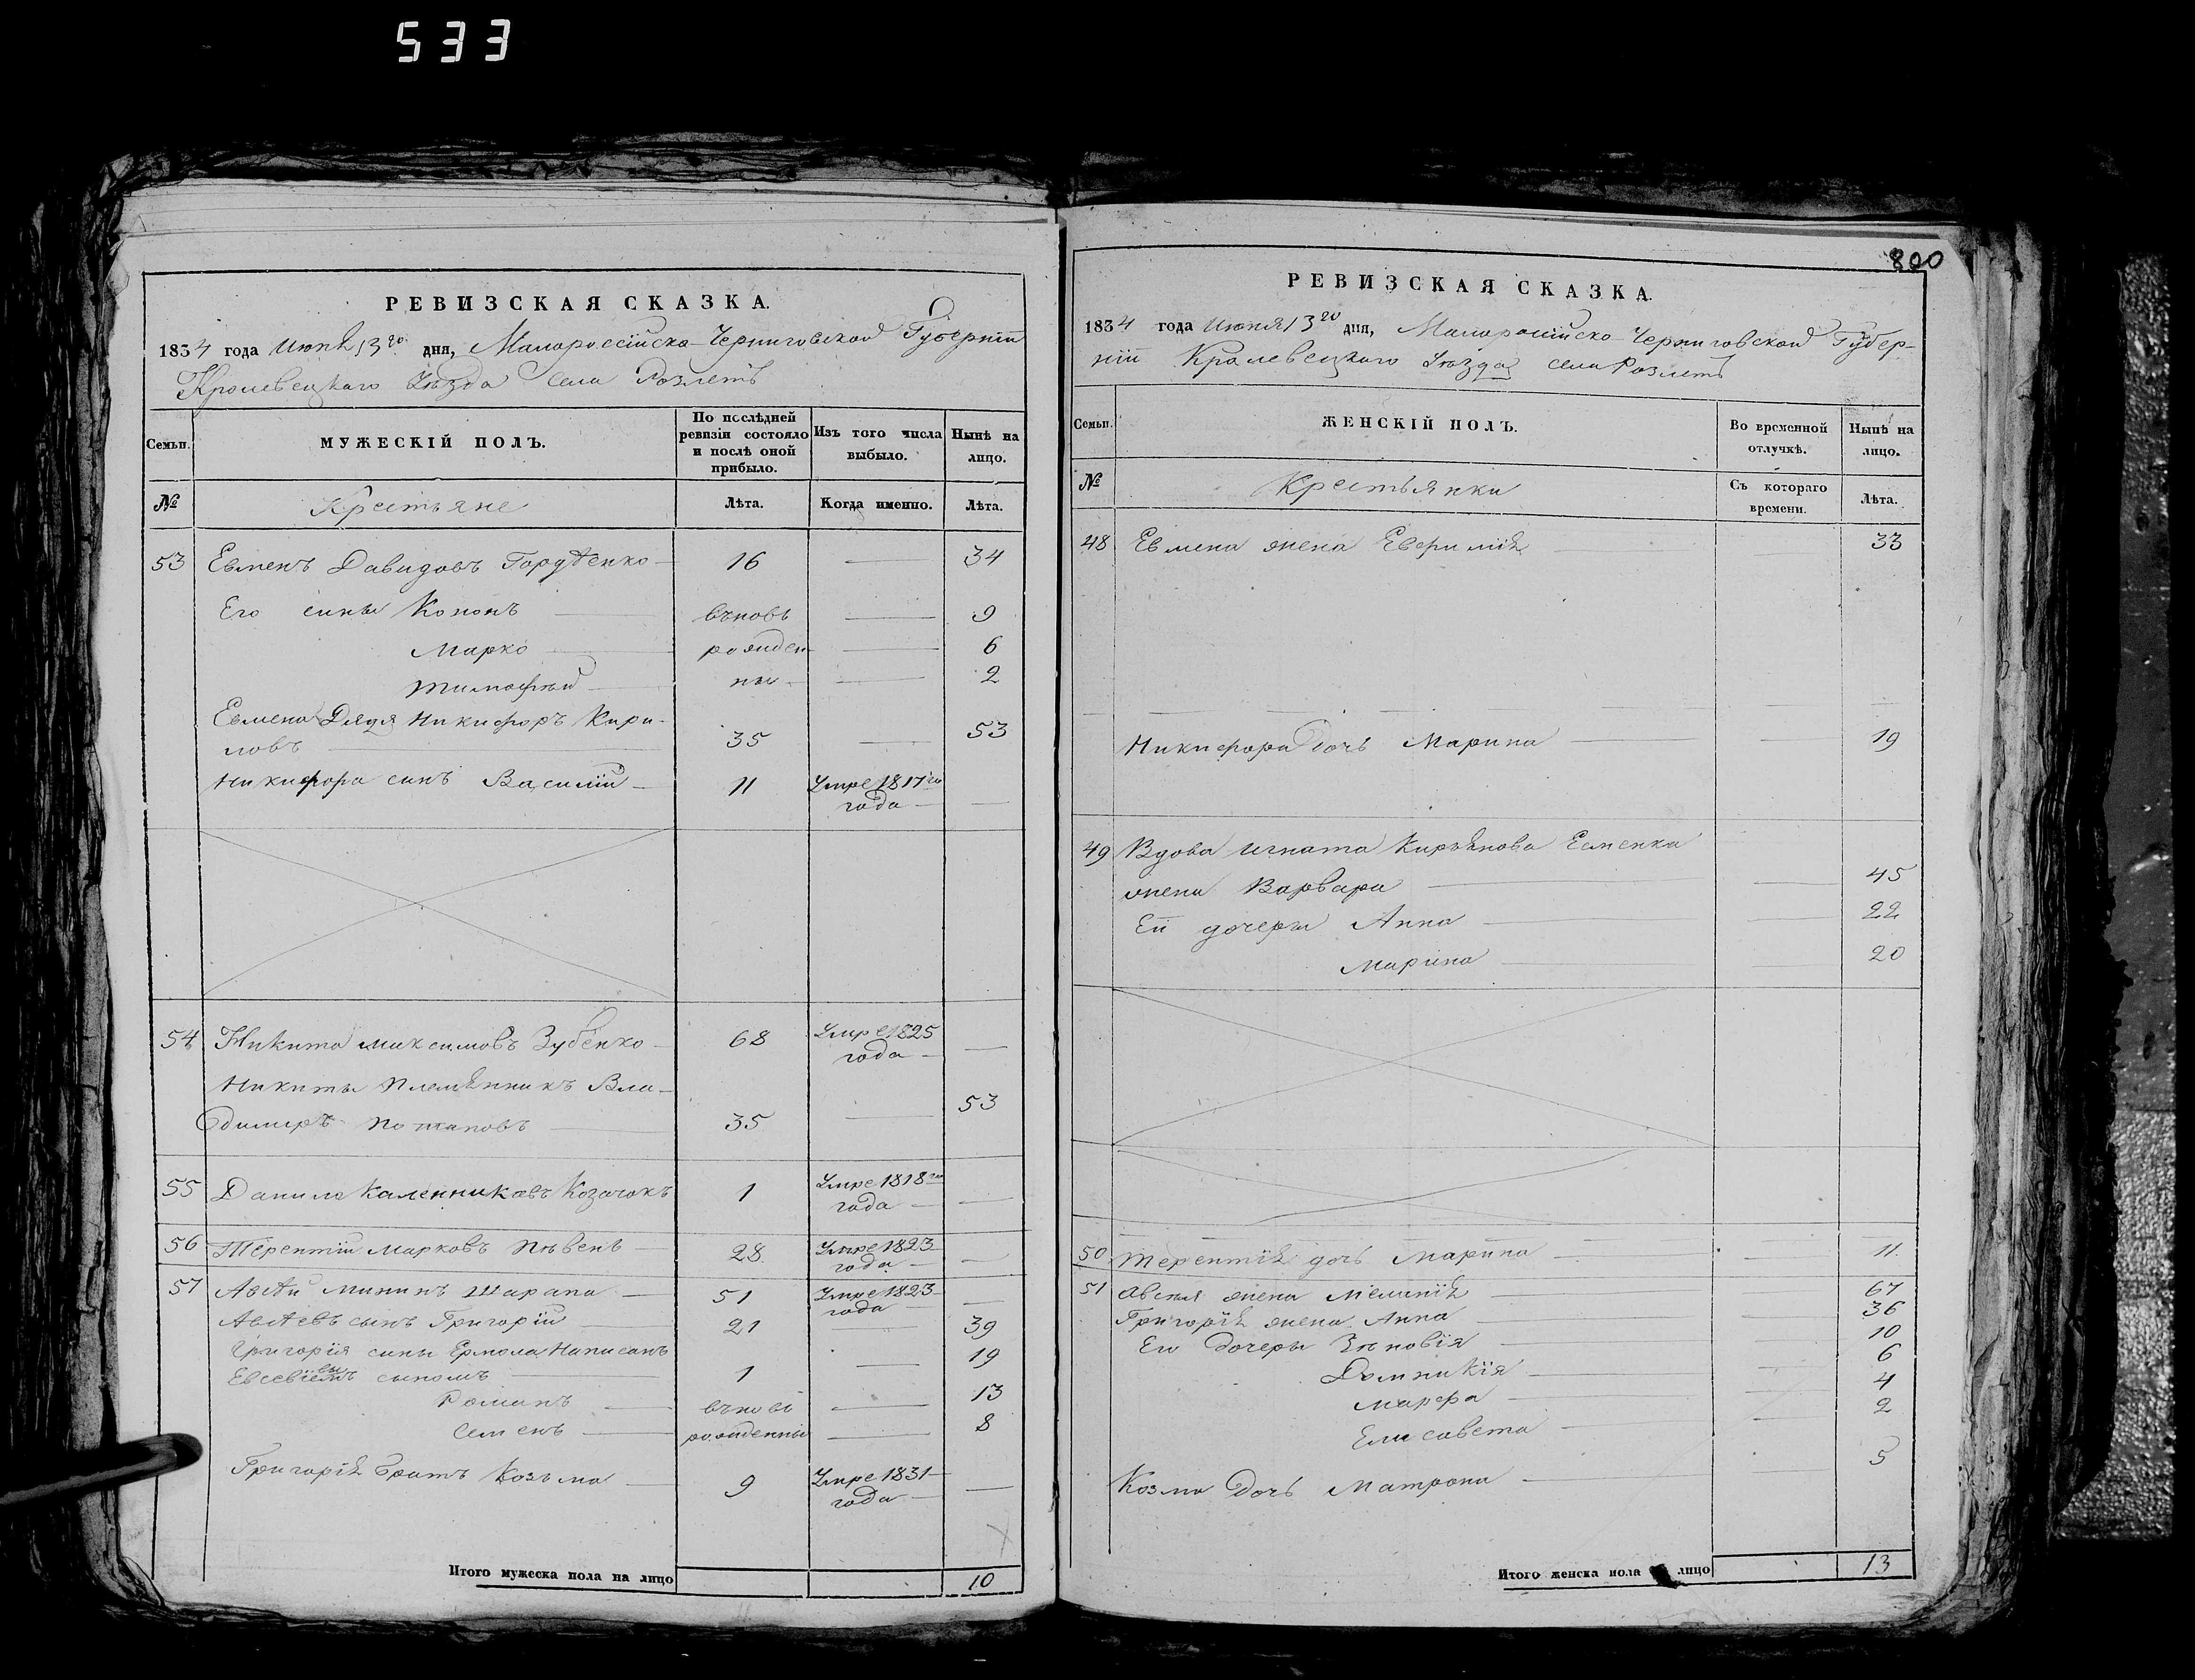 533
800
РЕВИЗСКАЯ СКАЗКА.
1834 года Июня 13го дня, Малороссійско-Черниговской Губерніи
Кролевецкаго Уѣзда села Розлетъ
Семьи.
МУЖЕСКІЙ ПОЛЪ.
По послѣдней ревизіи состояло и послѣ оной прибыло.
Изъ того числа выбыло.
Нынѣ на лицо.
№
Крестьяне
Лѣта.
Когда именно.
Лѣта.
53 Евменъ Давидовъ Гордѣенко 16 — 34
Его сины Кононъ въновь — 9
Марко рожден — 6
Тимофѣй ны — 2
Евмена Дядя Никифоръ Кири-
ловъ 35 — 53
Никифора синъ Василій 11 Умре 1817го
года —
54 Никита Максимовъ Зубенко 68 Умре 1825
года —
Никиты Племѣнникъ Вла-
димиръ Потаповъ 35 — 53
55 Данило Каленниковъ Козачокъ 1 Умре 1818го
года —
56 Терентій Марковъ Пѣвень 28 Умре 1823
года —
57 Авсѣй Мининъ Шарапа 51 Умре 1823
года —
Авсѣевъ сынъ Григорій 21 — 39
Григорія сины Ермола Написанъ 19
Евсевіемъ сыномъ 1 —
Романъ въновь — 13
Семенъ рожденны — 8
Григорія Братъ Козьма 9 Умре 1831
года —
Итого мужеска пола на лицо 10
РЕВИЗСКАЯ СКАЗКА.
1834 года Июня 13го дня, Малоросійско-Черниговской Губер-
ніи Кролевецкаго Уѣзда села Розлетъ
Семьи.
ЖЕНСКІЙ ПОЛЪ.
Во временной отлучкѣ.
Нынѣ на лицо.
№
Крестьянки
Съ котораго времени.
Лѣта.
48 Евмена жена Евфимія — 33
Никифора Дочь Марина — 19
49 Вдова Игната Кирьянова Евменка
жена Варвара — 45
Еи дочеры Анна — 22
Марина — 20
50 Терентія дочь Марина — 11
51 Авсея жена Меланія — 67
Григорія жена Анна — 36
Его Дочеры Зѣновія — 10
Домникія — 6
Марфа — 4
Елисавета — 2
Козма Дочь Матрона — 5
Итого женска пола лицо 13